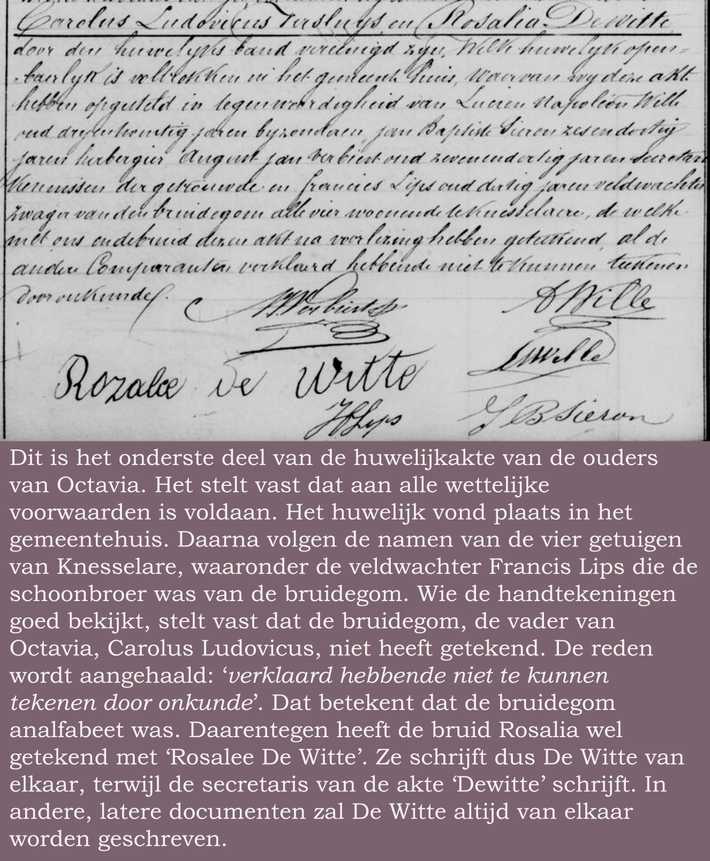 Carolus Ludovicus Versluys en Rosalia Dewitte
door den huwelyks band vereenigd zyn, Welk huwelyk open-
baerlyk is voltrokken in het gemeente huis, waervan wy deze akt
hebben opgesteld in tegenwoordigheid van Lucien Napoléon Wille
oud dryentwintig jaren byzonderen, jan Baptiste Sieron zesendertig
jaren herbergier August jan Verbiest oud zevenendertig jaren secretaris
Kennissen der getrouwde en francies Lips oud dertig jaren veldwachter
zwager van den bruidegom alle vier woonende te Knesselaere, de welke
met ons en de bruid dezen akt na voorlezing hebben geteekend, al de
andere Comparanten verklaerd hebbende niet te kunnen teekenen
door onkunde.
Verbiest A Wille
Wille
Rozalee De Witte
Lips J B Sieron
Dit is het onderste deel van de huwelijkakte van de ouders
van Octavia. Het stelt vast dat aan alle wettelijke
voorwaarden is voldaan. Het huwelijk vond plaats in het
gemeentehuis. Daarna volgen de namen van de vier getuigen
van Knesselare, waaronder de veldwachter Francis Lips die de
schoonbroer was van de bruidegom. Wie de handtekeningen
goed bekijkt, stelt vast dat de bruidegom, de vader van
Octavia, Carolus Ludovicus, niet heeft getekend. De reden
wordt aangehaald: ‘verklaard hebbende niet te kunnen
tekenen door onkunde’. Dat betekent dat de bruidegom
analfabeet was. Daarentegen heeft de bruid Rosalia wel
getekend met ‘Rosalee De Witte’. Ze schrijft dus De Witte van
elkaar, terwijl de secretaris van de akte ‘Dewitte’ schrijft. In
andere, latere documenten zal De Witte altijd van elkaar
worden geschreven.